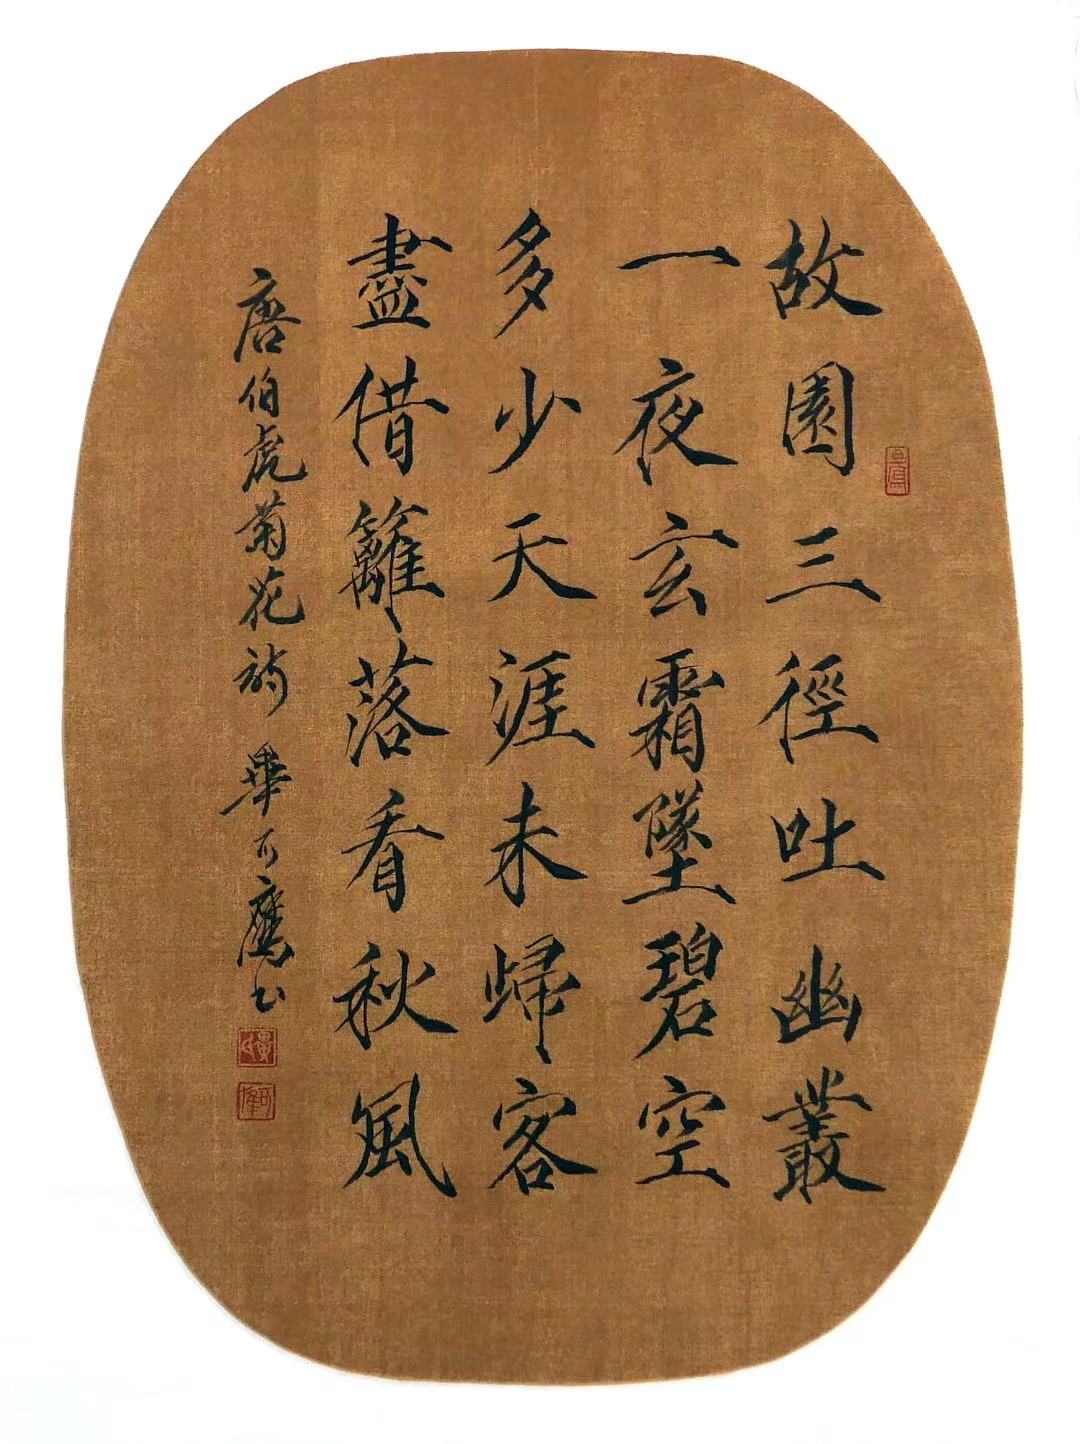 故園三徑吐幽叢
一夜玄霜墜碧空
多少天涯未歸客
盡借籬落看秋風
唐伯虎菊花詩 畢可鷹書